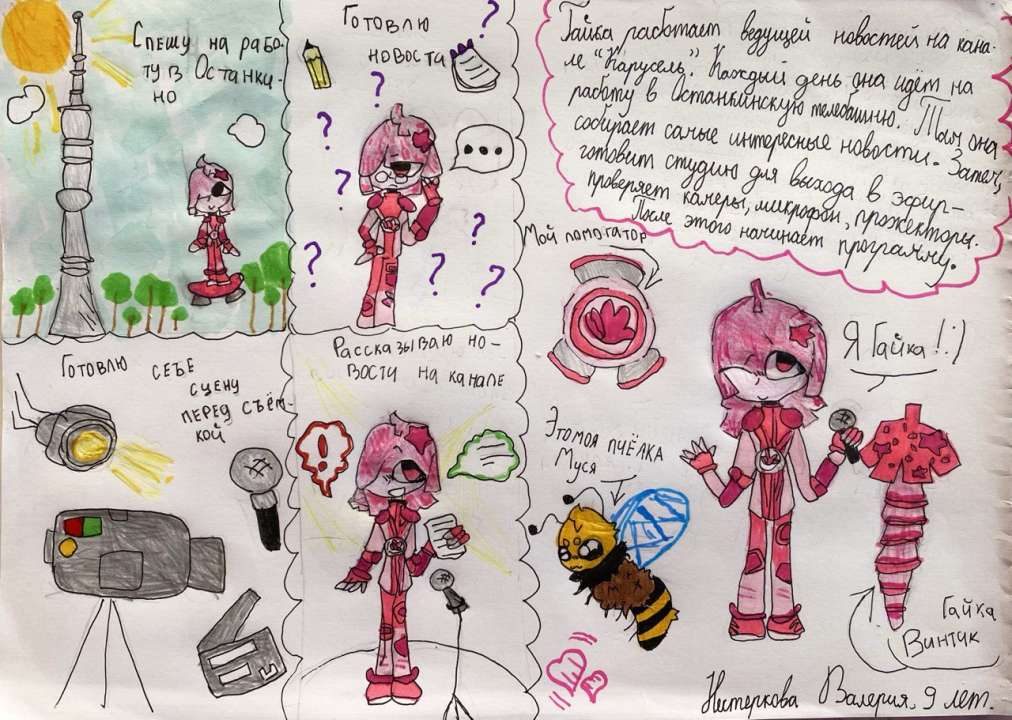 Спешу на рабо-
ту в Останки-
но
Готовлю
новоста
?
?
?
?
?
?
?
?
...
Гайка работает ведущей новостей на кана-
ле "Карусель". Каждый день она идёт на
работу в Останкинскую телебашню. Там она
собирает самые интересные новости. Затем,
готовит студию для выхода в эфир-
проверяет камеры, микрофон, прожекторы.
После этого начинает программу.
Готовлю себе
сцену
перед съём-
кой
Рассказываю но-
вости на канале
!
Мой помогатор
Я Гайка!:)
Это моя пчёлка
Муся
Гайка
Винтик
Нестеркова Валерия. 9 лет.